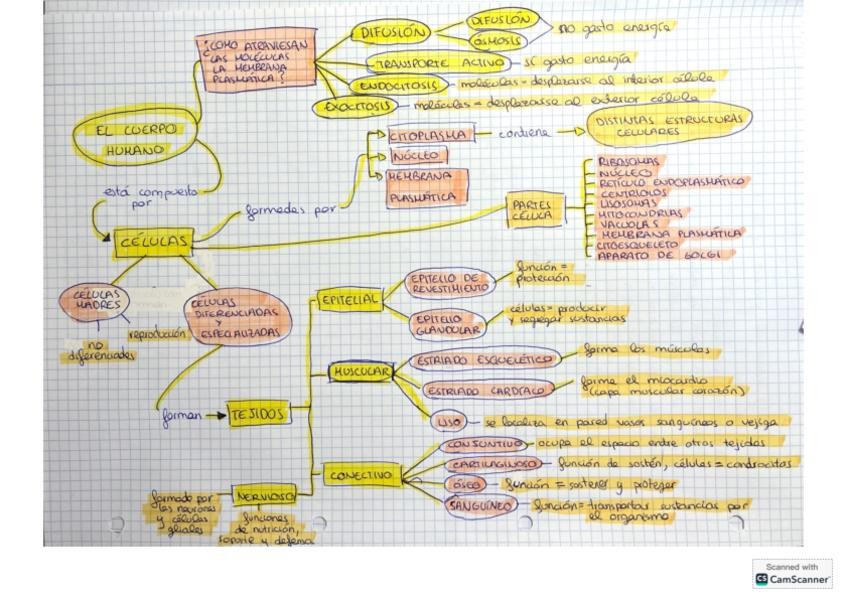 ¿COMO ATRAVIESAN
LAS MOLÉCULAS
LA MEMBRANA
PLASMÁTICA?
DIFUSIÓN
DIFUSIÓN
ÓSMOSIS
no gasto energía
TRANSPORTE ACTIVO
sí gasto energía
ENDOCITOSIS
moléculas = desplazarse al interior célula
EXOCITOSIS
moléculas = desplazarse al exterior célula
EL CUERPO
HUMANO
está compuesto
por
CÉLULAS
formadas por
CITOPLASMA
contiene
DISTINTAS ESTRUCTURAS
CELULARES
NÚCLEO
MEMBRANA
PLASMÁTICA
PARTES
CÉLULA
RIBOSOMAS
NÚCLEO
RETÍCULO ENDOPLASMÁTICO
CENTRIOLOS
LISOSOMAS
MITOCONDRIAS
VACUOLAS
MEMBRANA PLASMÁTICA
CITOESQUELETO
APARATO DE GOLGI
CÉLULAS
MADRES
no
diferenciades
reproducción
CÉLULAS
DIFERENCIADAS
Y
ESPECIALIZADAS
forman
TEJIDOS
EPITELIAL
EPITELIO DE
REVESTIMIENTO
función =
protección
EPITELIO
GLANDULAR
células = producir
y segregar sustancias
MUSCULAR
ESTRIADO ESQUELÉTICO
forma los músculos
ESTRIADO CARDÍACO
forma el miocardio
(capa muscular corazón)
LISO
se localiza en pared vasos sanguíneos o vejiga
CONECTIVO
CONJUNTIVO
ocupa el espacio entre otros tejidos
CARTILAGINOSO
función de sostén, células = condrocitos
ÓSEO
función = sostener y proteger
SANGUÍNEO
función = transportar sustancias por
el organismo
NERVIOSO
formado por
las neuronas
y células
gliales
funciones
de nutrición,
soporte y defensa
Scanned with
CS CamScanner